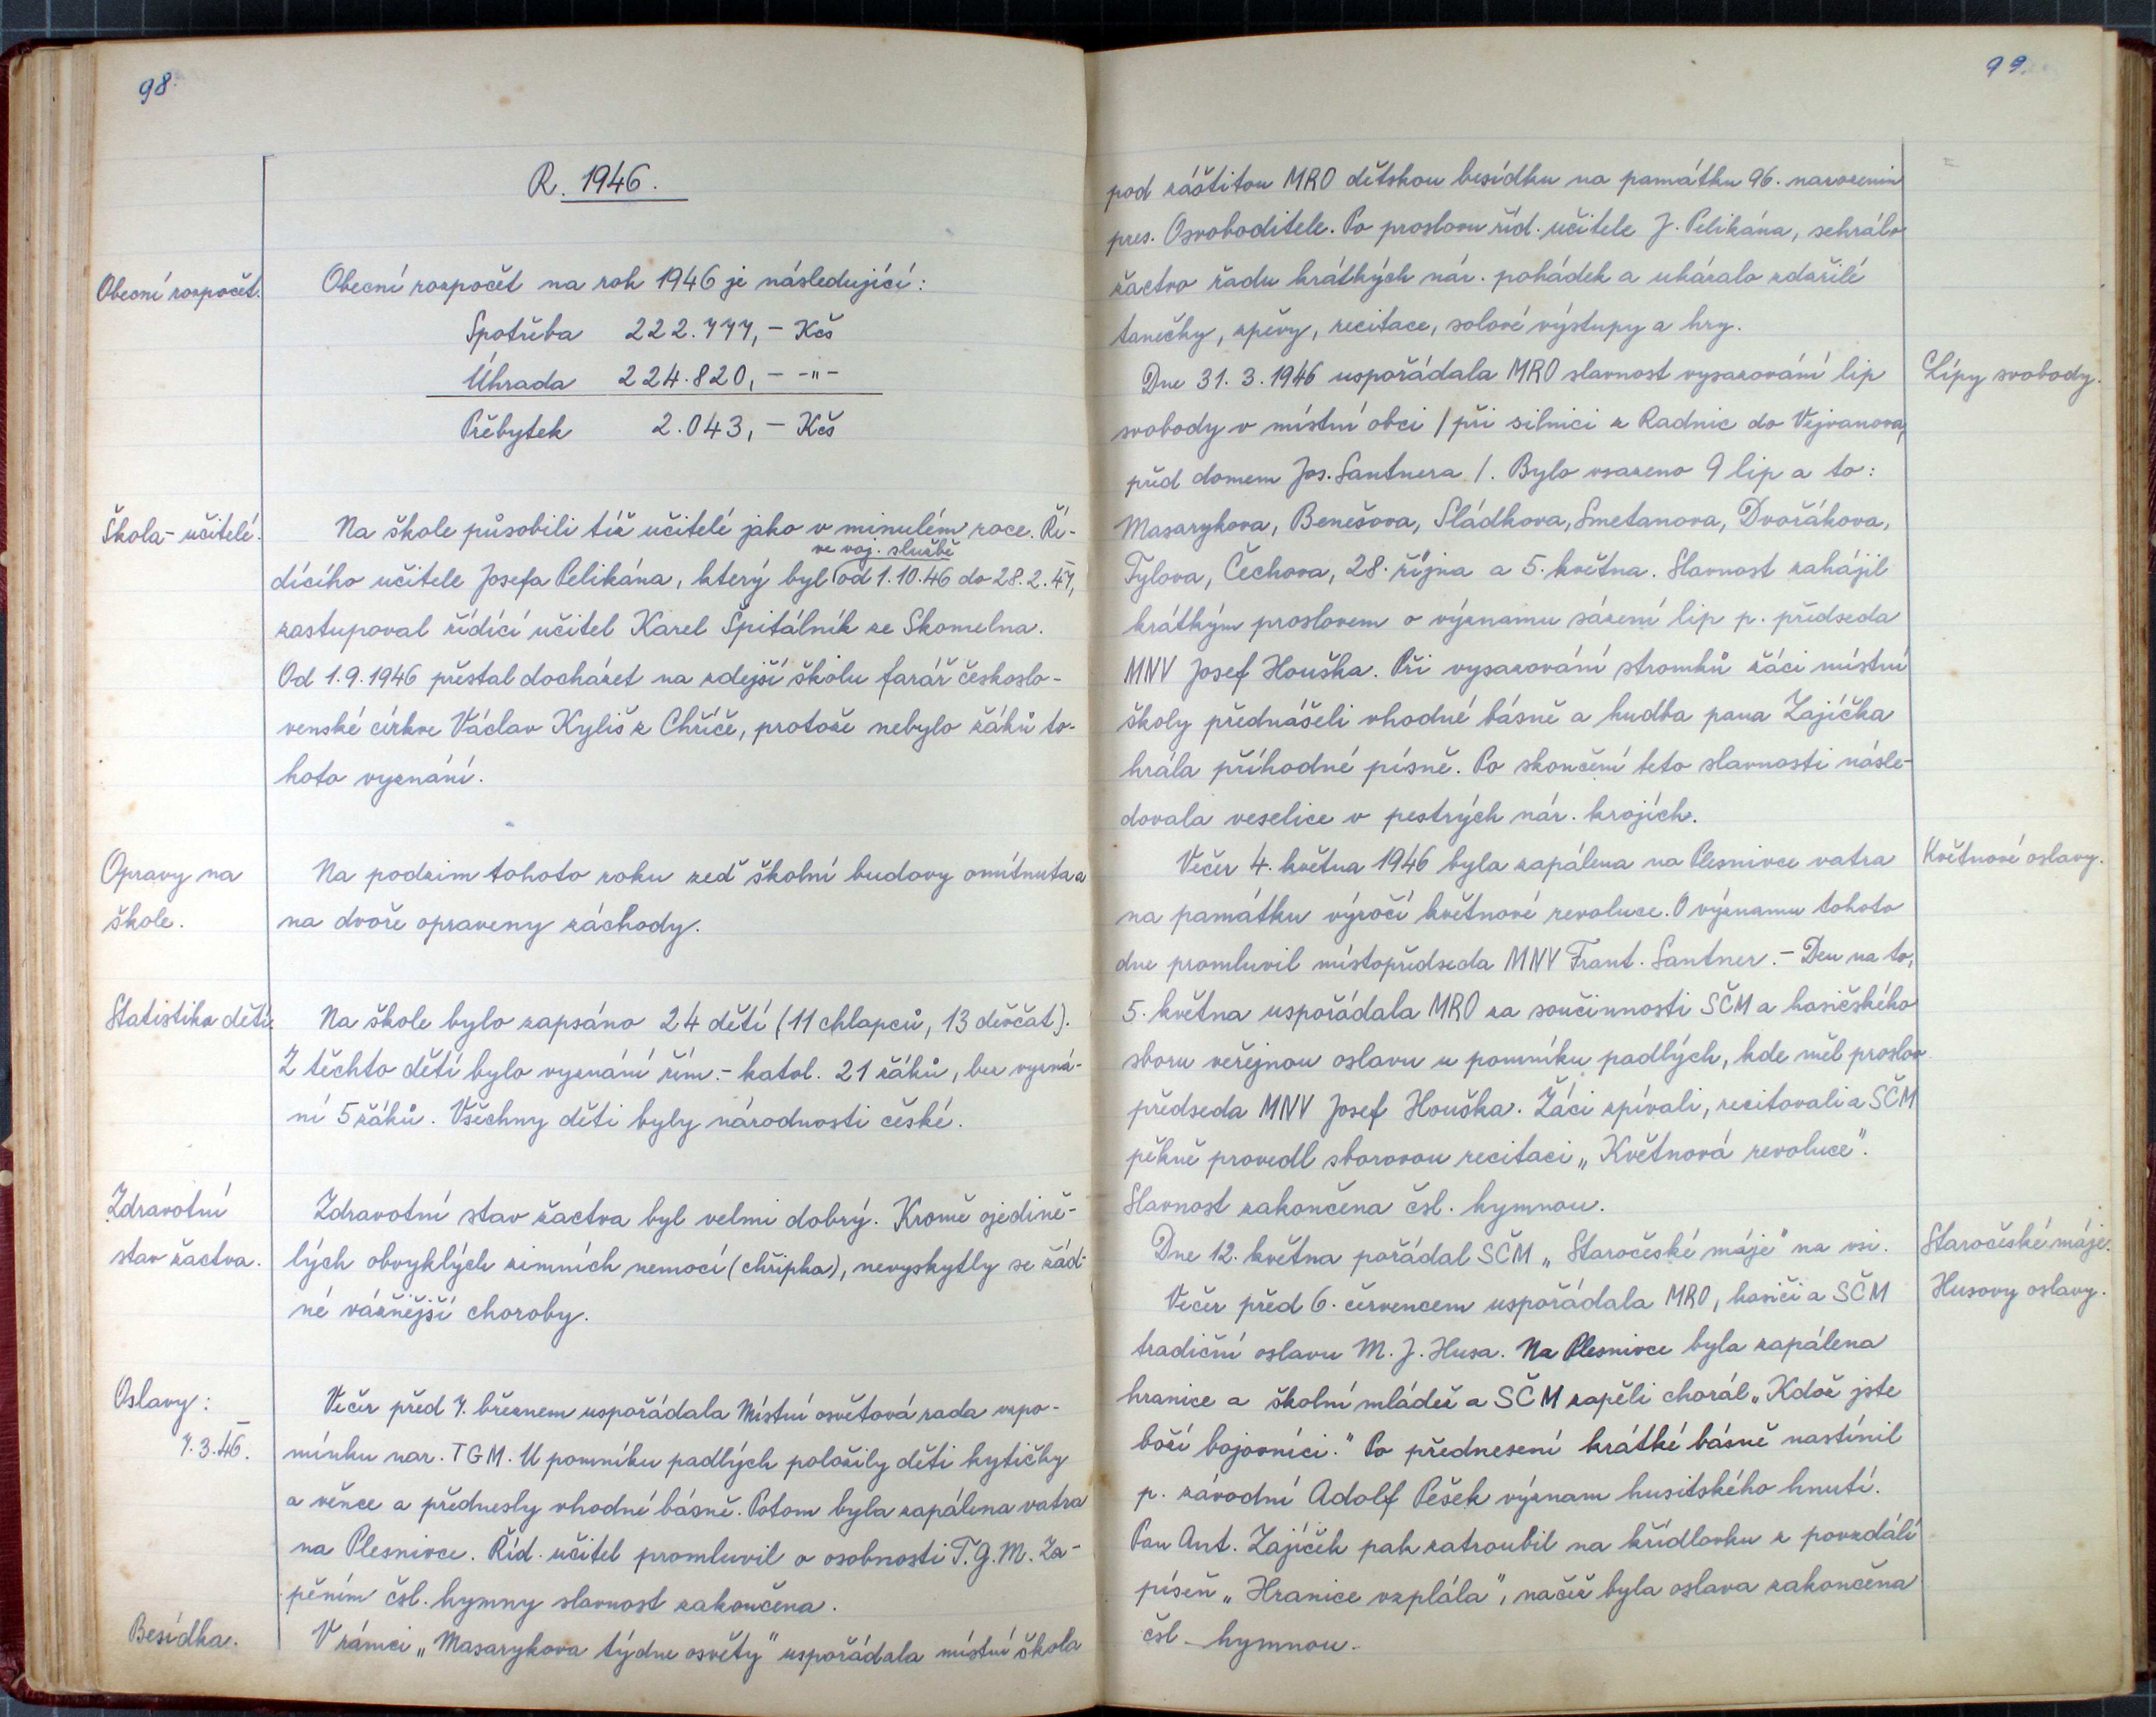 98.
R. 1946.
Obecní rozpočet.
Obecní rozpočet na rok 1946 je následující:
Spotřeba 222.777,- Kčs
Úhrada 224.820,- -"-
Přebytek 2.043,- Kčs
Škola - učitelé.
Na škole působili tíž učitelé jako v minulém roce. Ří-
ve voj. službě
dícího učitele Josefa Pelikána, který byl od 1.10.46 do 28.2.47,
zastupoval řídící učitel Karel Špitálník ze Skomelna.
Od 1.9.1946 přestal docházet na zdejší školu farář českoslo-
venské církve Václav Kyliš z Chříče, protože nebylo žáků to-
hoto vyznání.
Opravy na
škole.
Na podzim tohoto roku zeď školní budovy omítnuta a
na dvoře opraveny záchody.
Statistika dětí.
Na škole bylo zapsáno 24 dětí (11 chlapců, 13 děvčat).
Z těchto dětí bylo vyznání řím.- katol. 21 žáků, bez vyzná-
ní 5 žáků. Všechny děti byly národnosti české.
Zdravotní
stav žactva.
Zdravotní stav žactva byl velmi dobrý. Kromě ojedině-
lých obvyklých zimních nemocí (chřipka), nevyskytly se žád-
né vážnější choroby.
Oslavy:
7.3.46.
Večer před 7. březnem uspořádala Místní osvětová rada vzpo-
mínku nar. TGM. U pomníku padlých položily děti kytičky
a věnce a přednesly vhodné básně. Potom byla zapálena vatra
na Plesnivce. Říd. učitel promluvil o osobnosti T.G.M. Za-
pěním čsl. hymny slavnost zakončena.
Besídka.
V rámci „Masarykova týdne osvěty" uspořádala místní škola
99.
pod záštitou MRO dětskou besídku na památku 96. narozenin
pres. Osvoboditele. Po proslovu říd. učitele J. Pelikána, sehrálo
žactvo řadu krátkých nár. pohádek a ukázalo zdařilé
tanečky, zpěvy, recitace, solové výstupy a hry.
Lípy svobody.
Dne 31. 3. 1946 uspořádala MRO slavnost vysazování lip
svobody v místní obci / při silnici z Radnic do Vejvanova,
před domem Jos. Santnera /. Bylo vsazeno 9 lip a to:
Masarykova, Benešova, Sládkova, Smetanova, Dvořákova,
Tylova, Čechova, 28. října a 5. května. Slavnost zahájil
krátkým proslovem o významu sázení lip p. předseda
MNV Josef Houška. Při vysazování stromků žáci místní
školy přednášeli vhodné básně a hudba pana Zajíčka
hrála příhodné písně. Po skončení teto slavnosti násle-
dovala veselice v pestrých nár. krojích.
Květnové oslavy.
Večer 4. května 1946 byla zapálena na Plesnivce vatra
na památku výročí květnové revoluce. O významu tohoto
dne promluvil místopředseda MNV Frant. Santner. - Den na to,
5. května uspořádala MRO za součinnosti SČM a hasičského
sboru veřejnou oslavu u pomníku padlých, kde měl proslov
předseda MNV Josef Houška. Žáci zpívali, recitovali a SČM
pěkně provedl sborovou recitaci „Květnová revoluce".
Slavnost zakončena čsl. hymnou.
Staročeské máje.
Dne 12. května pořádal SČM „Staročeské máje" na vsi.
Husovy oslavy.
Večer před 6. červencem uspořádala MRO, hasiči a SČM
tradiční oslavu M. J. Husa. Na Plesnivce byla zapálena
hranice a školní mládež a SČM zapěli chorál „Kdož jste
boží bojovníci." Po přednesení krátké básně nastínil
p. závodní Adolf Pešek význam husitského hnutí.
Pan Ant. Zajíček pak zatroubil na křídlovku z povzdálí
píseň „Hranice vzplála", načež byla oslava zakončena
čsl. hymnou.